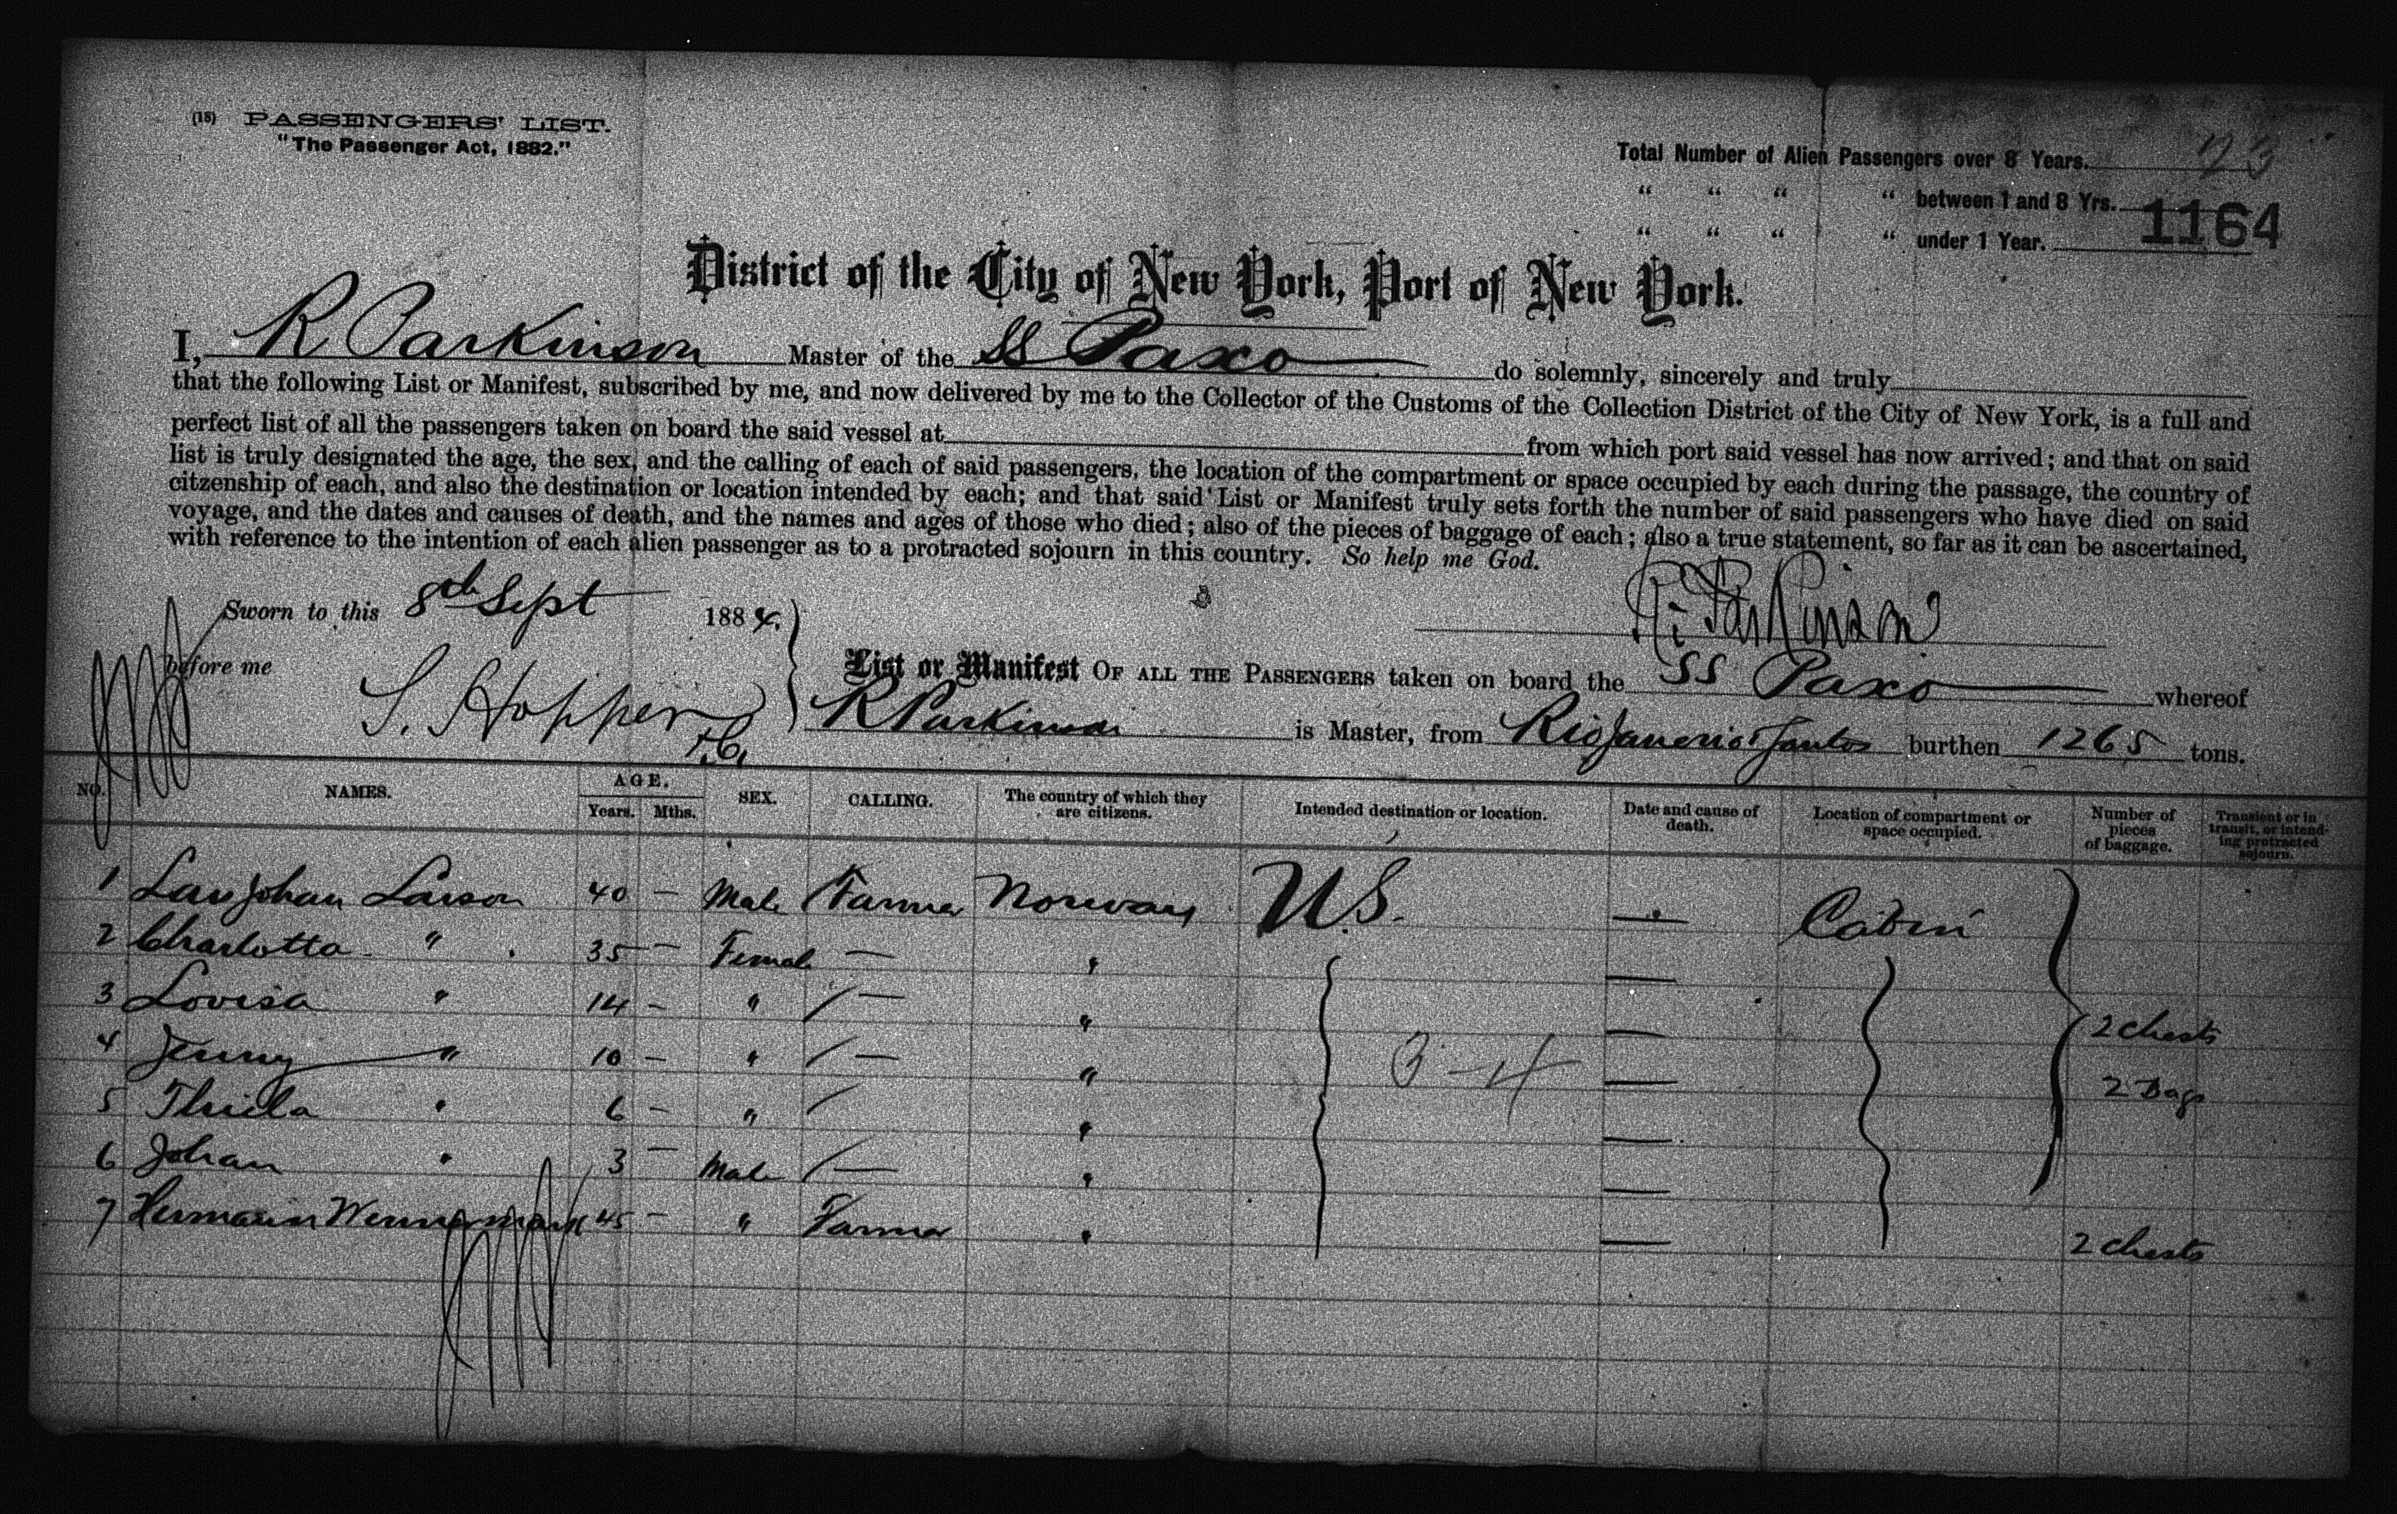 (18) PASSENGERS' LIST.
"The Passenger Act, 1882."
Total Number of Alien Passengers over 8 Years.
" " " " between 1 and 8 Yrs.
" " " " under 1 Year.
1164
District of the City of New York, Port of New York.
I, R Parkinson Master of the SS Paxo do solemnly, sincerely and truly
that the following List or Manifest, subscribed by me, and now delivered by me to the Collector of the Customs of the Collection District of the City of New York, is a full and
perfect list of all the passengers taken on board the said vessel at from which port said vessel has now arrived; and that on said
list is truly designated the age, the sex, and the calling of each of said passengers, the location of the compartment or space occupied by each during the passage, the country of
citzenship of each, and also the destination or location intended by each; and that said List or Manifest truly sets forth the number of said passengers who have died on said
voyage, and the dates and causes of death, and the names and ages of those who died; also of the pieces of baggage of each; also a true statement, so far as it can be ascertained,
with reference to the intention of each alien passenger as to a protracted sojourn in this country. So help me God.
Sworn to this 8th Sept 1884. R. Parkinson
before me S. Hopper
List or Manifest OF ALL THE PASSENGERS taken on board the SS Paxo whereof
R Parkinson is Master, from Rio Janerio Santos burthen 1265 tons.
NO. NAMES. AGE. Years. Mths. SEX. CALLING. The country of which they are citizens. Intended destination or location. Date and cause of death. Location of compartment or space occupied. Number of pieces of baggage. Transient or in transit, or intending protracted sojourn.
1 Lars Johan Larson 40 – Male Farmer Norway U.S. — Cabin
2 Charlotta " 35 – Female — " —
3 Lovisa " 14 – " — " — 2 Chests
4 Jenny " 10 – " — " — 2 Bags
5 " 6 – " " —
6 Johan " 3 – Male — " —
7 Hermann Wennermark 45 – " Farmer " — 2 Chests